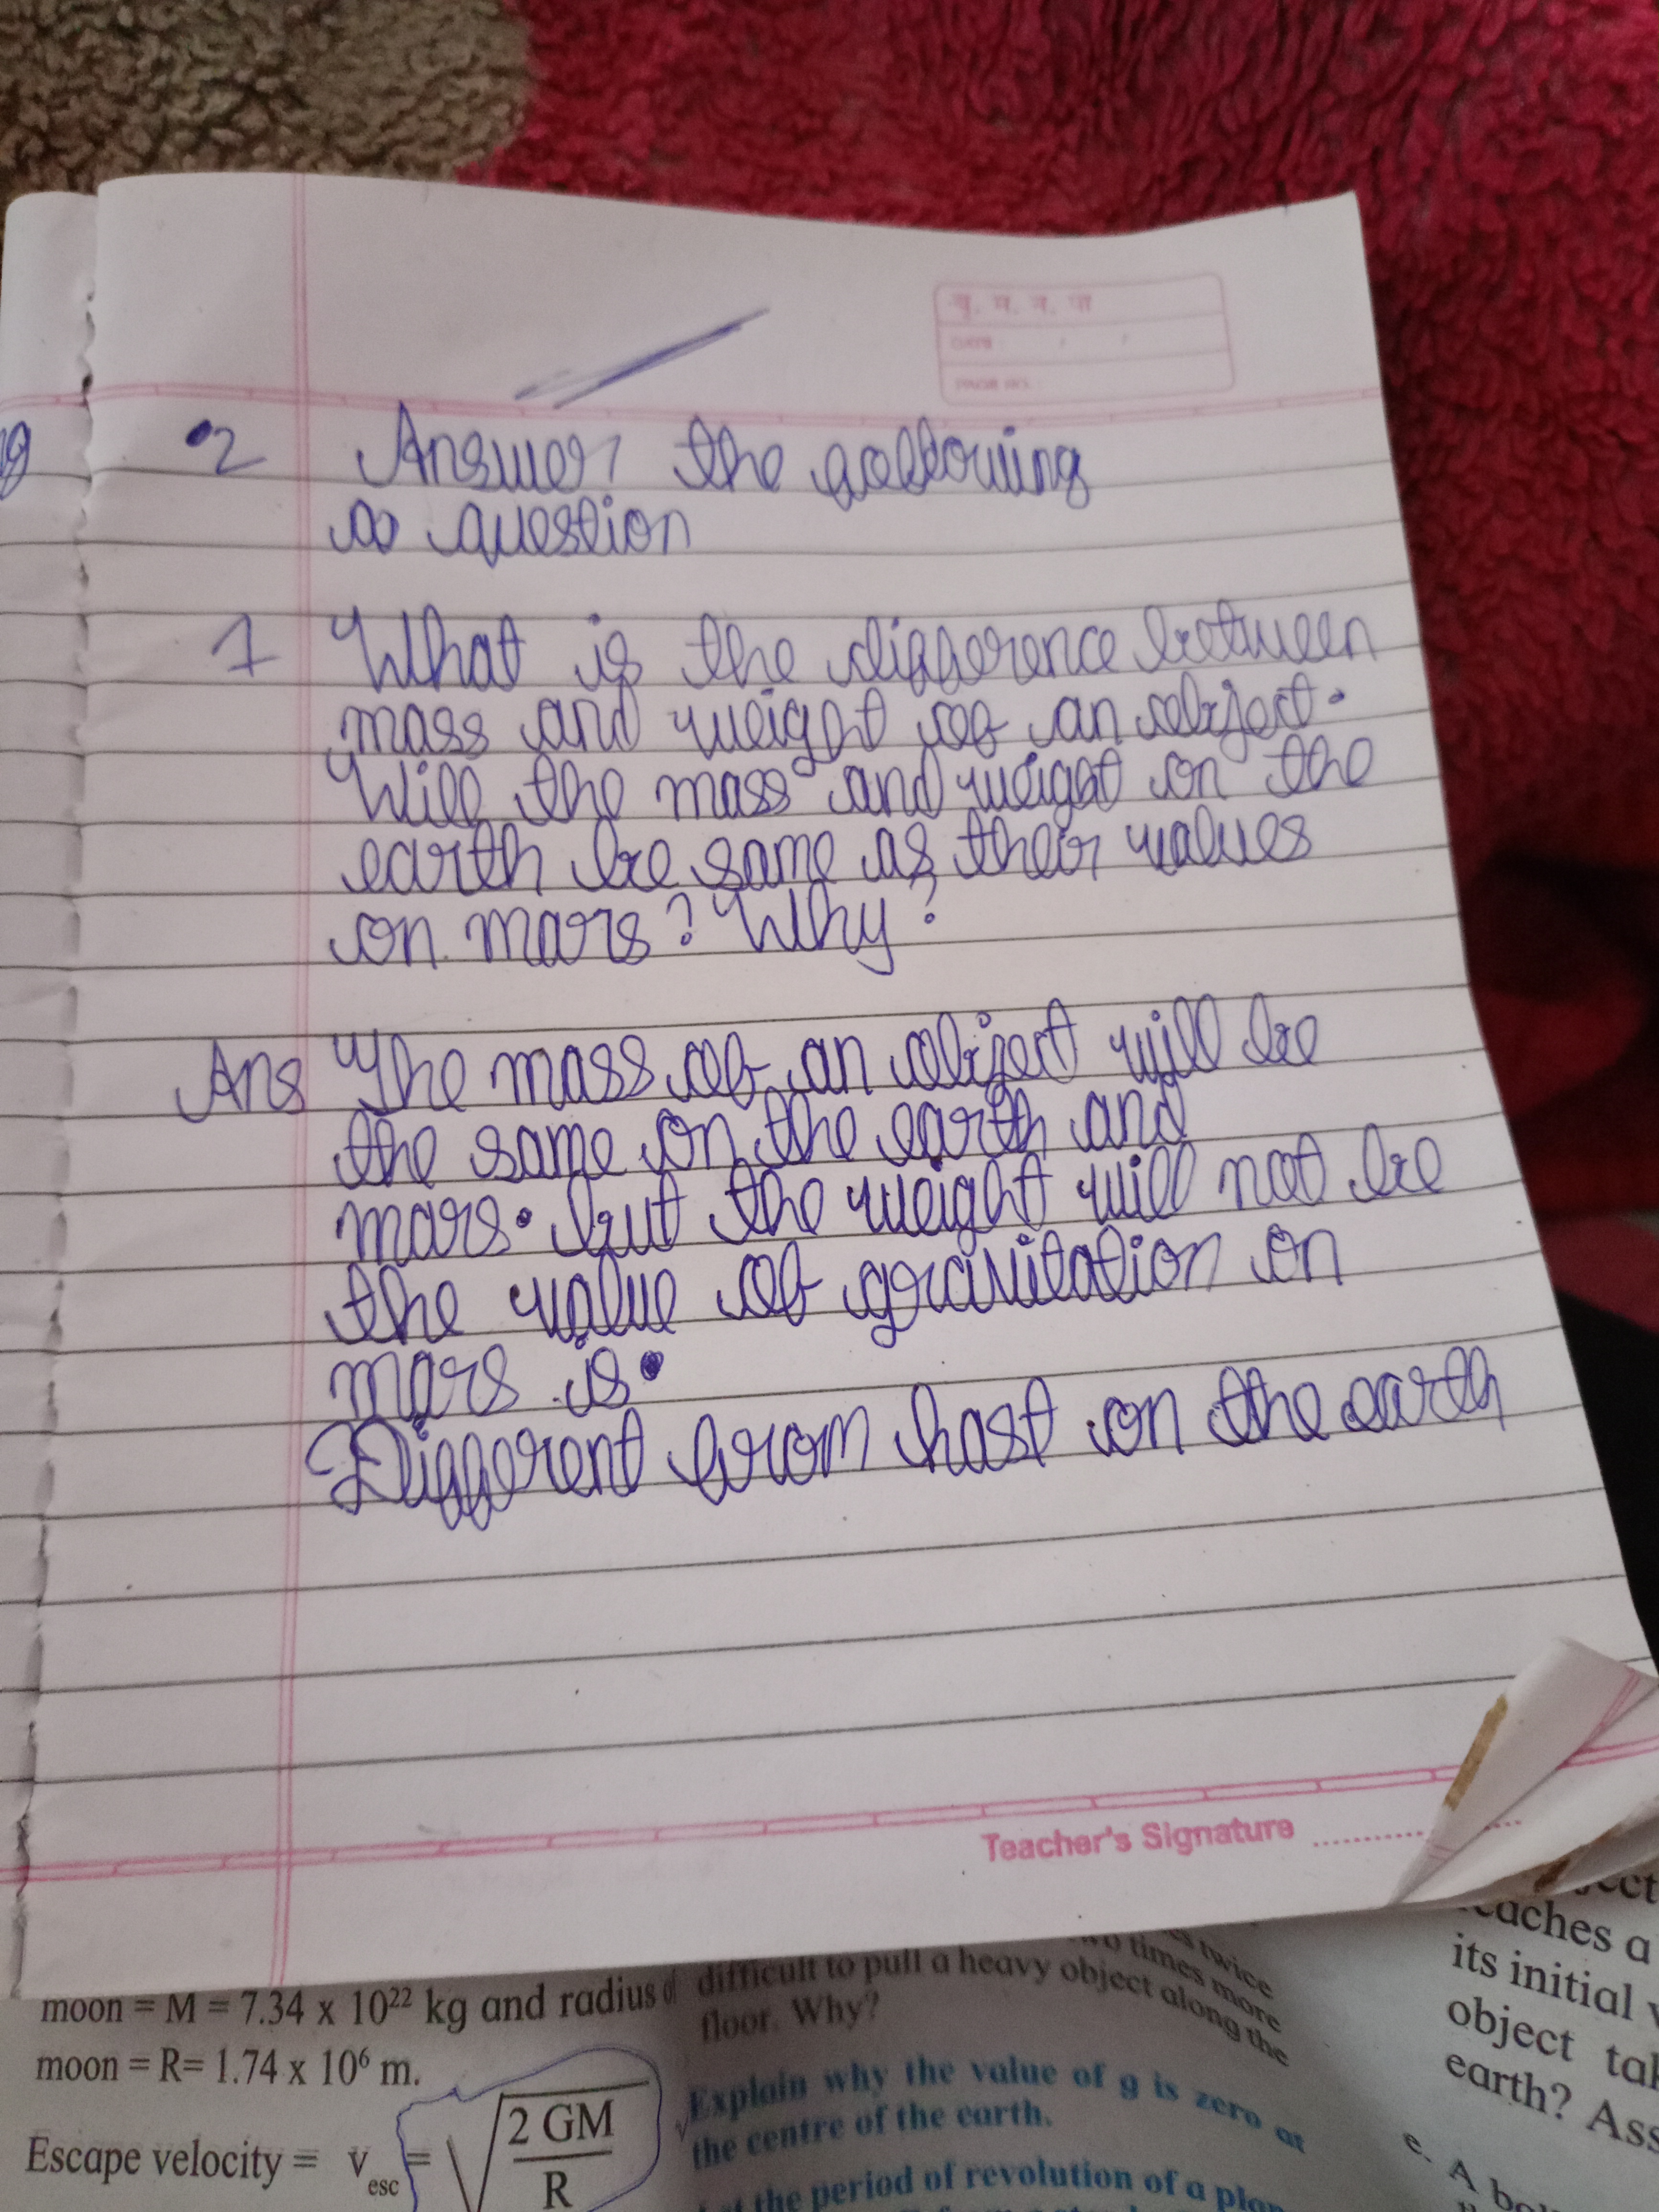 चू. म. न. पा
DATE / /
PAGE NO.:
2 Answer the following
question
1 What is the difference between
mass and weight of an object.
Will the mass and weight on the
earth be same as their values
on mars? Why?
Ans The mass of an object will be
the same on the earth and
mars. but the weight will not be
the value of gravitation on
mars is.
Different from hast on the earth
Teacher's Signature
moon = M = 7.34 x 10²² kg and radius of
moon = R= 1.74 x 10⁶ m.
Escape velocity = v esc = √ 2 GM / R
s twice
two times more
difficult to pull a heavy object along the
floor. Why?
Explain why the value of g is zero at
the centre of the earth.
the period of revolution of a plan
ject
reaches a
its initial v
object tak
earth? Ass
e. A bo